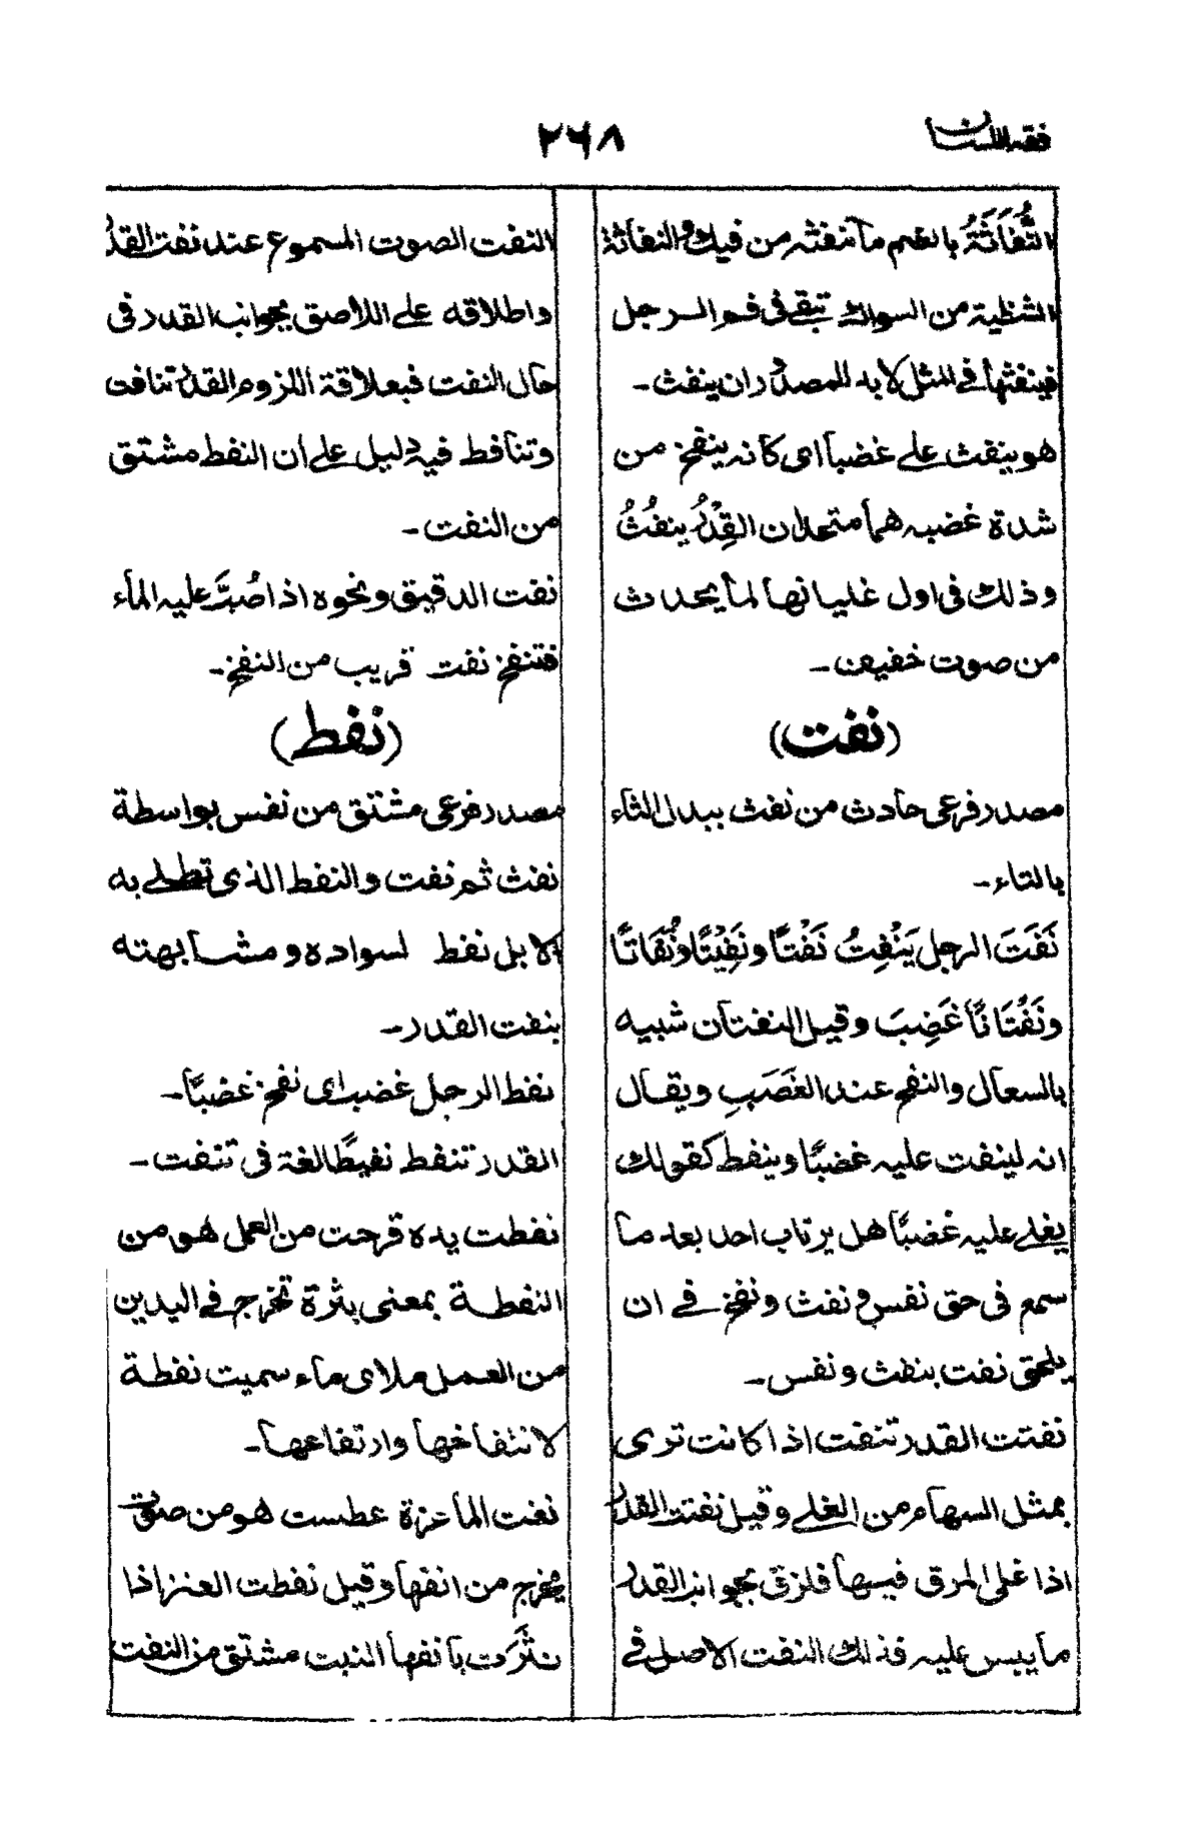 فقه اللسان
٢٦٨
النُّفَاثَةُ بالضم ما تنفثه من فيك والنفاثة
الشظية من السواك تبقى فى فم الرجل
فينفثها فى المثل لا بد للمصدور ان ينفث-
هو ينفث على غضبا اى كانه ينفخ من
شدة غضبه هما متحدان القِدْرُ ينفُثُ
وذلك فى اول غليانها لما يحدث
من صوت خفيف-
(نفت)
مصدر فرعى حادث من نفث ببدل الثاء
بالتاء-
نَفَتَ الرجل يَنْفِتُ نَفْتًا ونَفِيْتًا ونُفَاتًا
ونَفْتَانًا غَضِبَ وقيل النفتان شبيه
بالسعال والنفخ عند الغَضَبِ ويقال
انه لينفت عليه غضبًا وينفط كقولك
يغلى عليه غضبًا هل يرتاب احد بعد ما
سمع فى حق نفس و نفث ونفخ فى ان
يلحق نفت بنفث ونفس-
نفتت القدر تنفت اذا كانت ترى
بمثل السهام من الغلى وقيل نفتت القدر
اذا غلى المرق فيها فلزق بجوانب القدر
ما يبس عليه فذلك النفت الاصل فى
النفت الصوت المسموع عند نفت القدر
واطلاقه على اللاصق بجوانب القدر فى
حال النفت فبعلاقة اللزوم القدر تنافت
وتنافط فيه دليل على ان النفط مشتق
من النفت-
نفت الدقيق ونحوه اذا صُبَّ عليه الماء
فتنفخ نفت قريب من النفخ-
(نفط)
مصدر فرعى مشتق من نفس بواسطة
نفث ثم نفت والنفط الذى تطلى به
الابل نفط لسواده ومشابهته
بنفت القدر-
نفط الرجل غضب اى نفخ غضبًا-
القدر تنفط نفيطًا لغة فى تنفت-
نفطت يده قرحت من العمل هو من
النفطة بمعنى بثرة تخرج فى اليدين
من العمل ملاى ماء سميت نفطة
لانتفاخها وارتفاعها-
نفت الماعزة عطست هو من صوت
يخرج من انفها وقيل نفطت العنز اذا
نثرت بانفها النبت مشتق من النفت